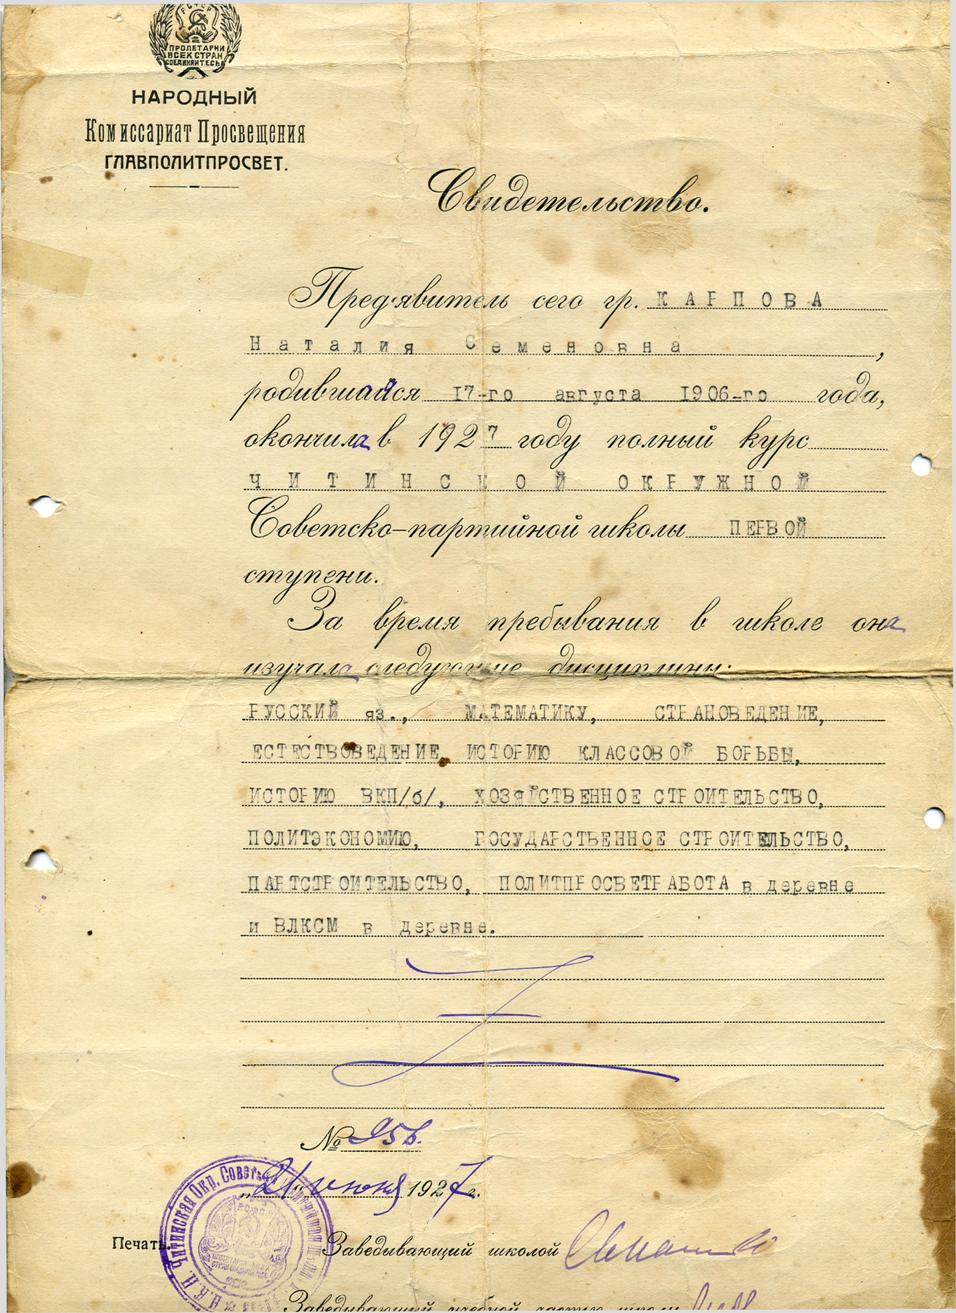 РСФСР
ПРОЛЕТАРИИ
ВСЕХ СТРАН
СОЕДИНЯЙТЕСЬ
НАРОДНЫЙ
Комиссариат Просвещения
ГЛАВПОЛИТПРОСВЕТ.
Свидетельство.
Пред'явитель сего гр. КАРПОВА
Наталия Семеновна,
родившаяся 17-го августа 1906-го года,
окончила в 1927 году полный курс
ЧИТИНСКОЙ ОКРУЖНОЙ
Советско-партийной школы ПЕРВОЙ
ступени.
За время пребывания в школе она
изучала следующие дисциплины:
РУССКИЙ яз., МАТЕМАТИКУ, СТРАНОВЕДЕНИЕ,
ЕСТЕСТВОВЕДЕНИЕ, ИСТОРИЮ КЛАССОВОЙ БОРЬБЫ,
ИСТОРИЮ ВКП/б/, ХОЗЯЙСТВЕННОЕ СТРОИТЕЛЬСТВО,
ПОЛИТЭКОНОМИЮ, ГОСУДАРСТВЕННОЕ СТРОИТЕЛЬСТВО,
ПАРТСТРОИТЕЛЬСТВО, ПОЛИТПРОСВЕТРАБОТА в деревне
и ВЛКСМ в деревне.
№
"21" июня 1927 г.
Н.К.П. Читинская Окр. Совет
РСФСР
Печать.
Заведывающий школой
Заведывающий учебной частью школы